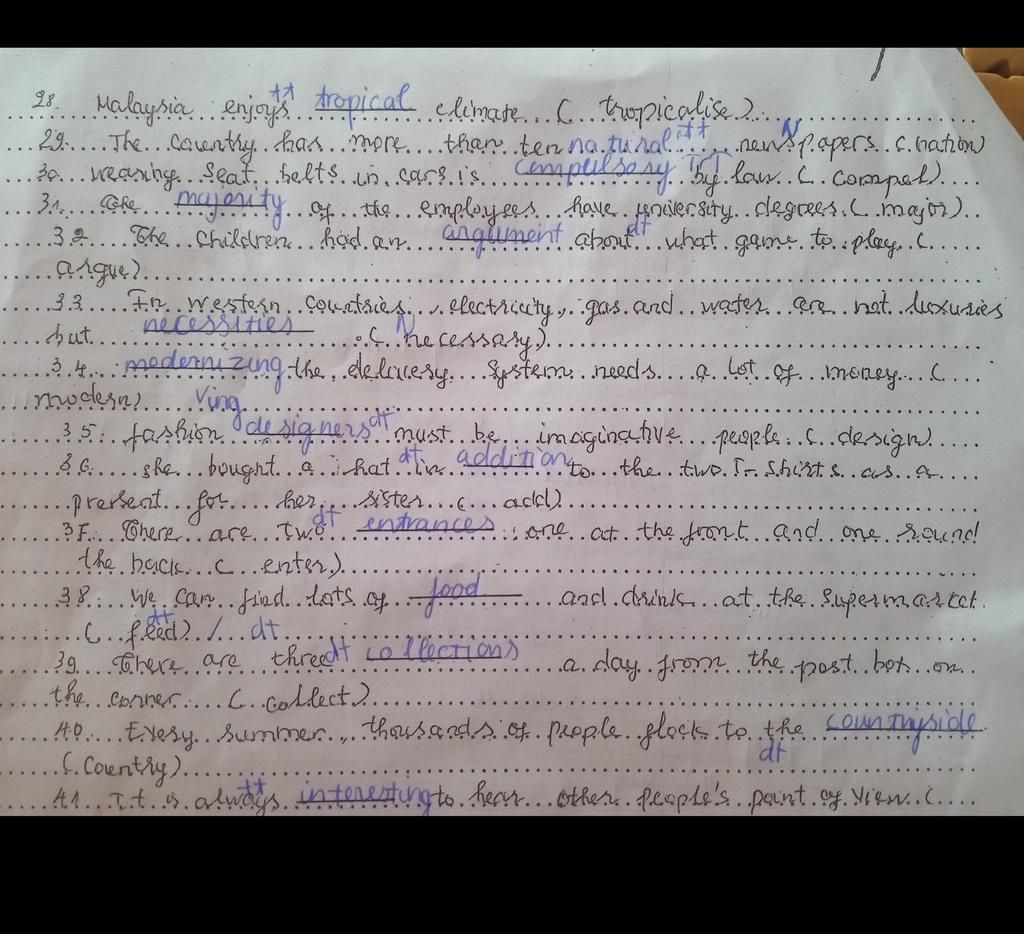 28. Malaysia enjoys tt tropical climate ( tropicalise )
29. The country has more than ten natural tt newspapers N ( nation )
30. wearing seat belts in cars is compulsory by law ( compel )
31. The majority of the employees have university degrees ( major )
32. The children had an argument about dt what game to play (
argue )
33. In western countries, electricity, gas and water are not luxuries
but necessities . ( N necessary )
34. modernizing the delivery system needs a lot of money (
modern ) Ving
35. fashion designers dt must be imaginative people. ( design )
36. she bought a hat dt in addition to the two T-shirts as a
present for her sister ( add )
37. There are two dt entrances : one at the front and one round
the back ( enter )
38. We can find lots of food and drink at the supermarket.
( feed ) / dt tt
39. There are three dt collections a day from the post box on
the corner ( collect )
40. Every summer, thousands of people flock to the countryside
( Country ) dt
41. It is always tt interesting to hear other people's point of view (